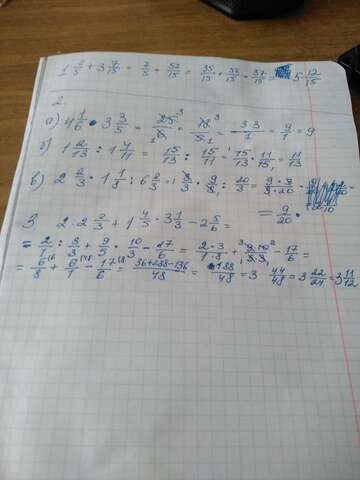 1 2/5 + 3 7/15 = 7/5 + 52/15 = 35/15 + 52/15 = 87/15 = 5 12/15
2.
а) 4 1/6 · 3 3/5 = 25/6 · 18/5 = 3·3/1 = 9/1 = 9
б) 1 2/13 : 1 4/11 = 15/13 : 15/11 = 15/13 · 11/15 = 11/13
в) 2 2/3 · 1 1/8 : 6 2/3 = 8/3 · 9/8 : 20/3 = 9·3/3·20
= 9/20
3. 2 : 2 2/3 + 1 4/5 · 3 1/3 - 2 5/6 =
= 2/1 : 8/3 + 9/5 · 10/3 - 17/6 = 2·3/1·8 + 9·10/5·3 - 17/6 =
= 6/8 + 6/1 - 17/6 = 36+288-136/48 = 188/48 = 3 44/48 = 3 22/24 = 3 11/12